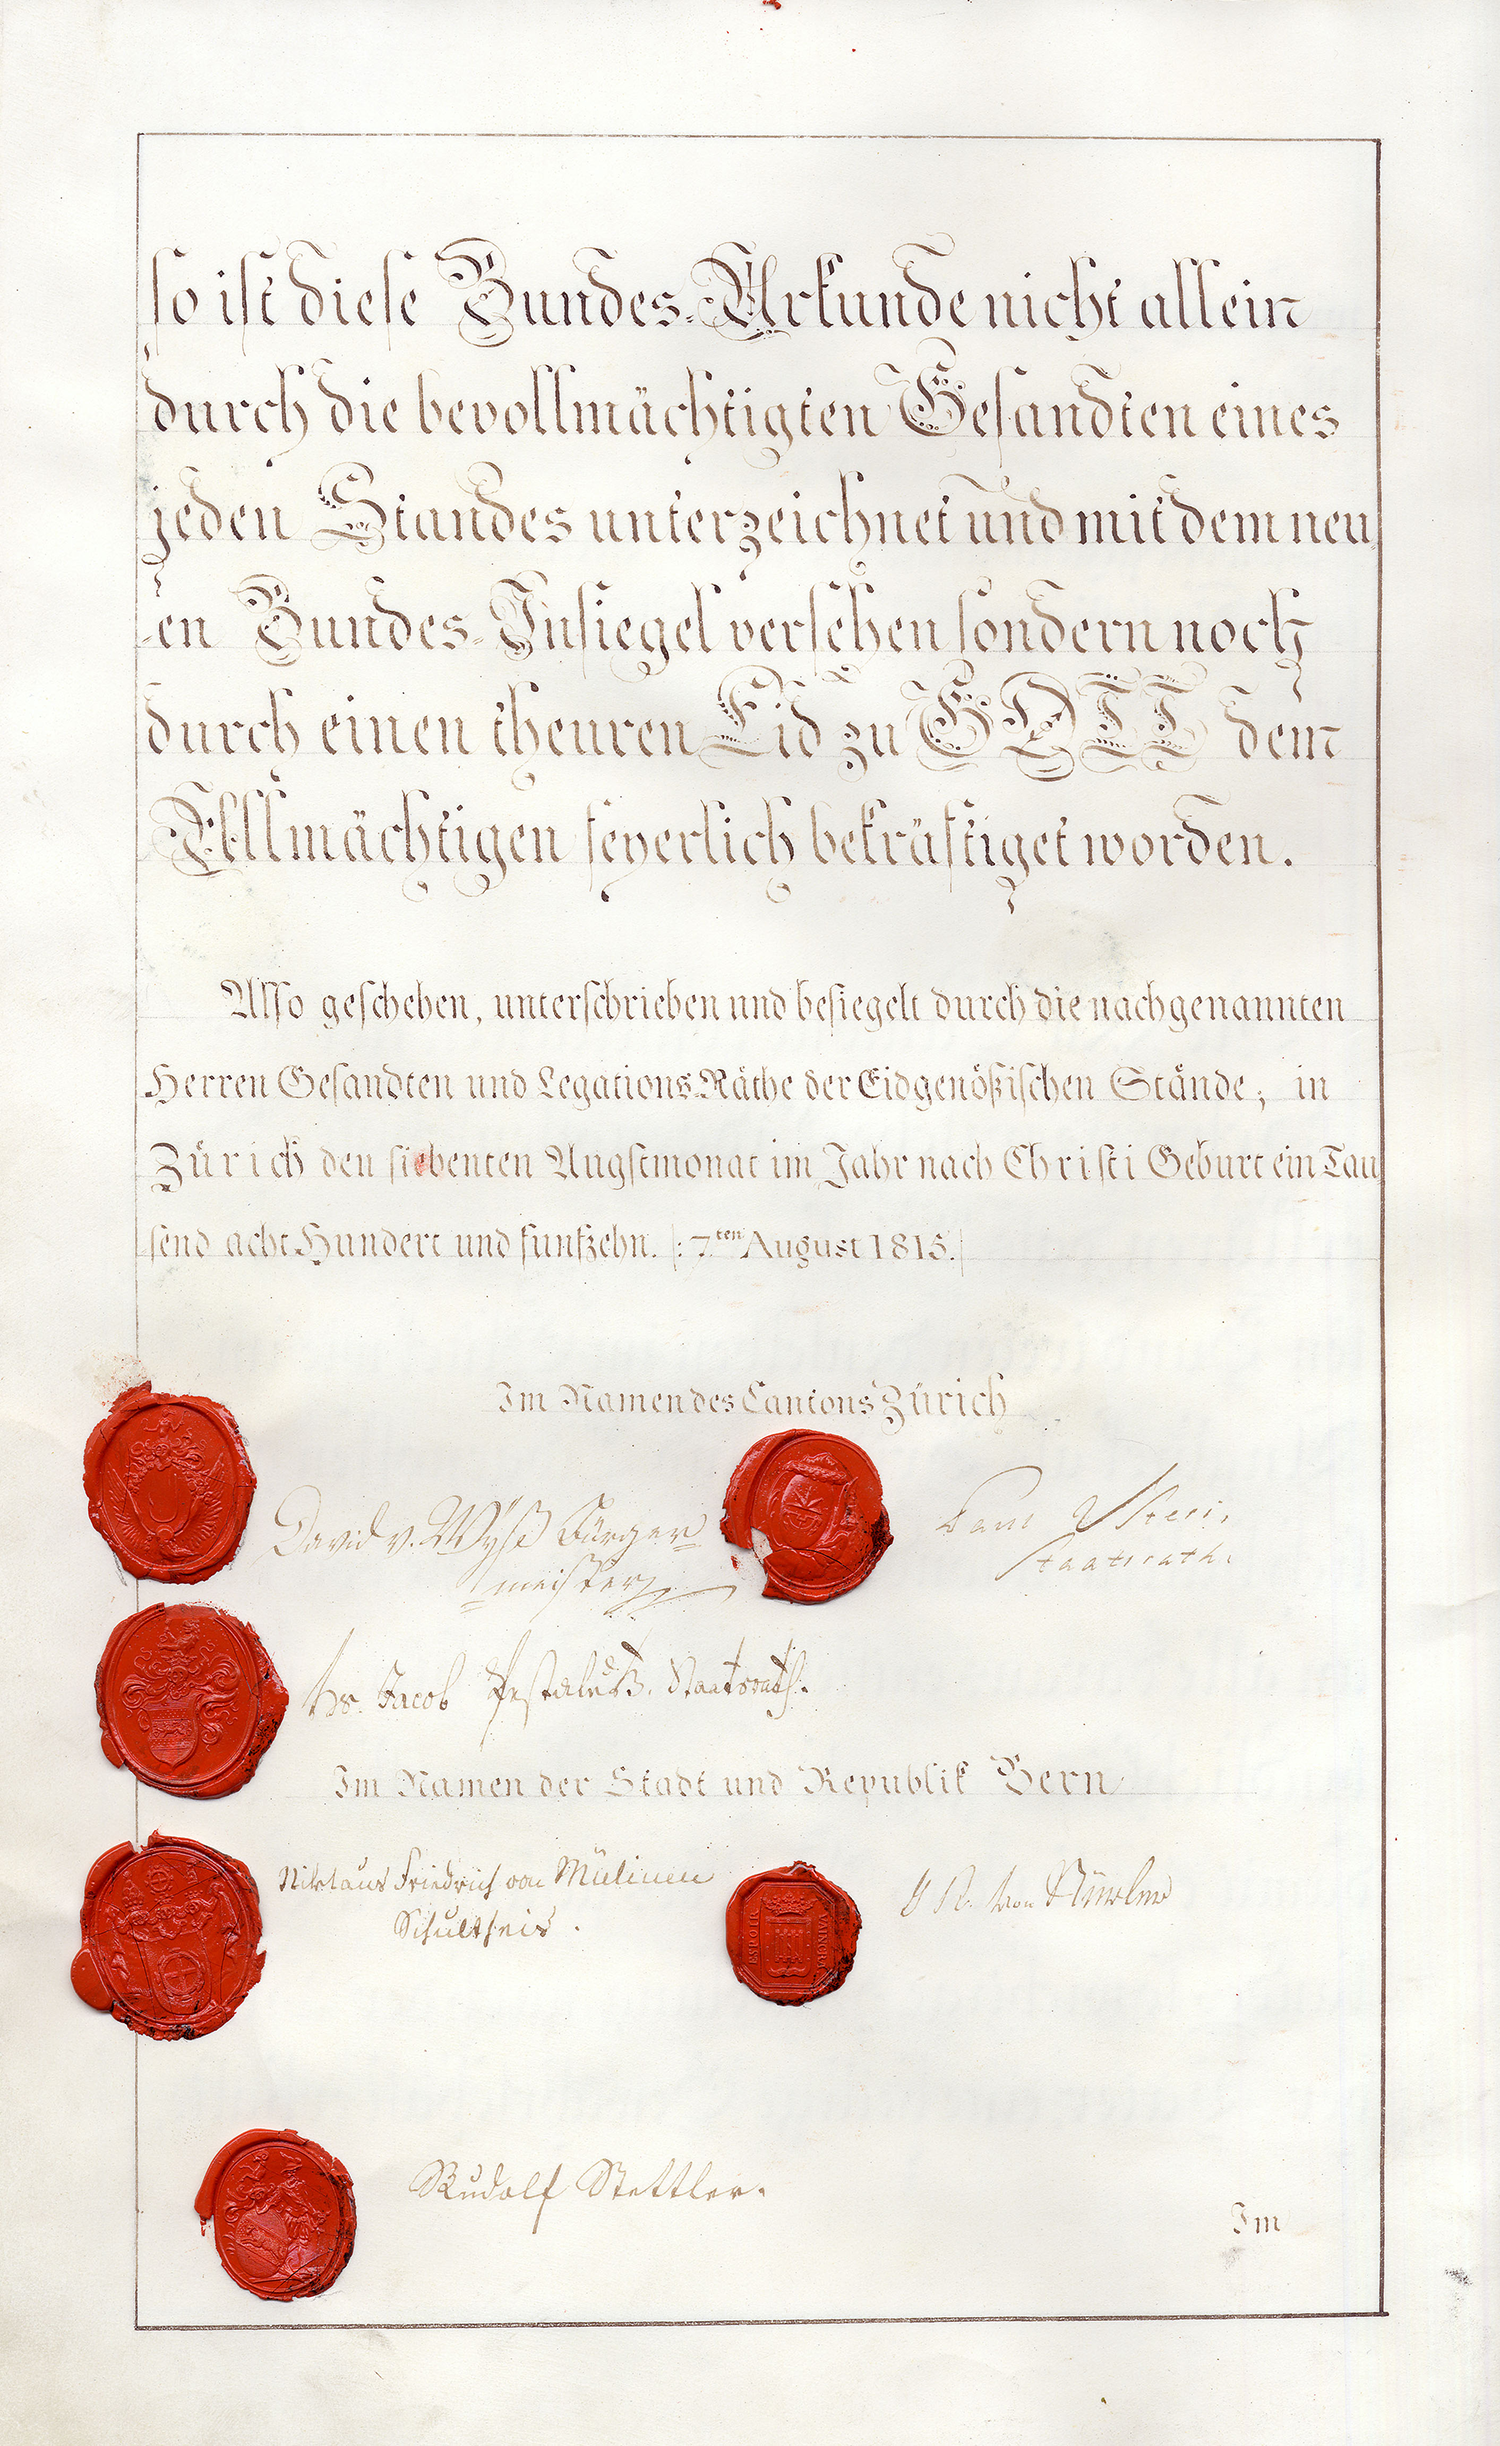 so ist diese Bundes-Urkunde nicht allein
durch die bevollmächtigten Gesandten eines
jeden Standes unterzeichnet und mit dem neu
en Bundes-Insiegel versehen sondern noch
durch einen theuren Eid zu GOTT dem
Allmächtigen feyerlich bekräftiget worden.
Also geschehen, unterschrieben und besiegelt durch die nachgenannten
Herren Gesandten und Legations-Räthe der Eidgenößischen Stände; in
Zürich den siebenten Augstmonat im Jahr nach Christi Geburt ein Tau
send acht Hundert und funfzehn. |: 7ten August 1815. |
Im Namen des Cantons Zürich
David v. Wyß Bürger
meister
Paul Usteri,
Staatsrath.
Hs. Jacob Pestaluz. Staatsrath.
Im Namen der Stadt und Republik Bern
Niklaus Friedrich von Mülinen
Schultheis.
von
Rudolf Stettler.
Im